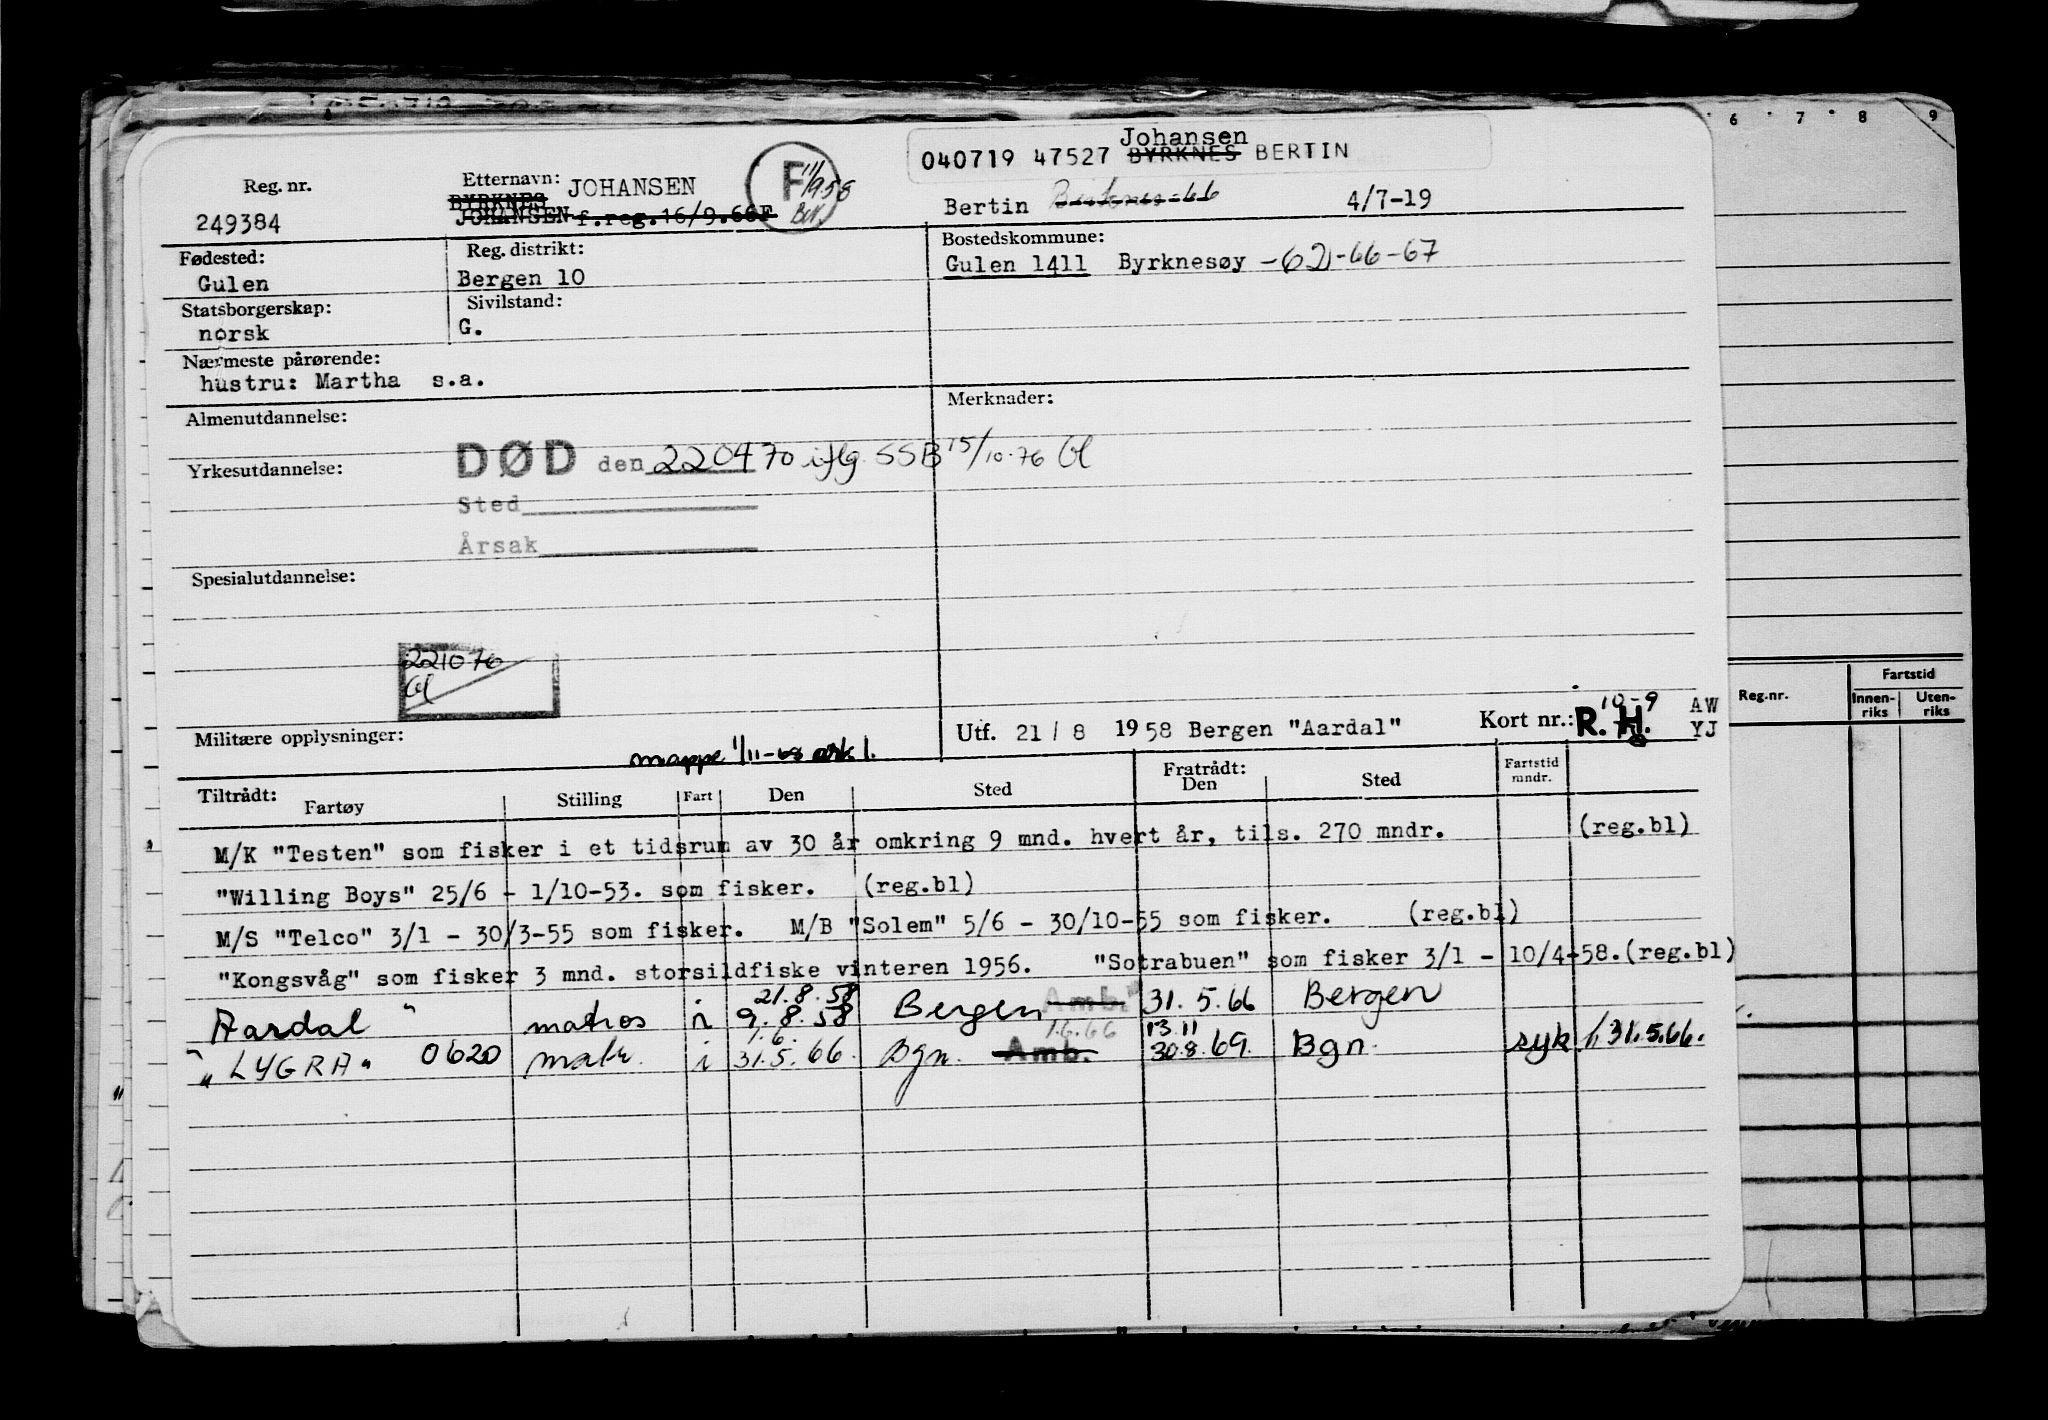 6 7 8 9
Johansen
040719 47527 BYRKNES BERTIN
Reg. nr. Etternavn: JOHANSEN F 11/9 58
BYRKNES
249384 JOHANSEN f.reg.16/9.66F
Bertin 4/7-19
Fødested: Reg. distrikt: Bostedskommune:
Gulen Bergen 10 Gulen 1411 Byrknesøy -62-66-67
Statsborgerskap: Sivilstand:
norsk G.
Nærmeste pårørende:
hustru: Martha s.a.
Almenutdannelse: Merknader:
Yrkesutdannelse: DØD den 220470 iflg. SSB 15/10.76 Gl
Sted
Årsak
Spesialutdannelse:
221076
Gl
Reg.nr. Fartstid
Innen-riks Uten-riks
Militære opplysninger: Utf. 21 / 8 1958 Bergen "Aardal" Kort nr.: R. H. 10-9 AW
YJ
mappe 1/11-68 ark 1.
Tiltrådt: Fratrådt: Fartstid mndr.
Fartøy Stilling Fart Den Sted Den Sted
M/K "Testen" som fisker i et tidsrum av 30 år omkring 9 mnd. hvert år, tils. 270 mndr. (reg.bl)
"Willing Boys" 25/6 - 1/10-53. som fisker. (reg.bl)
M/S "Telco" 3/1 - 30/3-55 som fisker. M/B "Solem" 5/6 - 30/10-55 som fisker. (reg.bl)
"Kongsvåg" som fisker 3 mnd. storsildfiske vinteren 1956. "Sotrabuen" som fisker 3/1 - 10/4-58.(reg.bl)
21.8.58
"Aardal" matros i 9.8.58 Bergen Amb. 31.5.66 Bergen
1.6. 1.6.66 13.11
"LYGRA" 0620 matr. i 31.5.66. Bgn. Amb. 30.8.69. Bgn. syk 1/31.5.66.